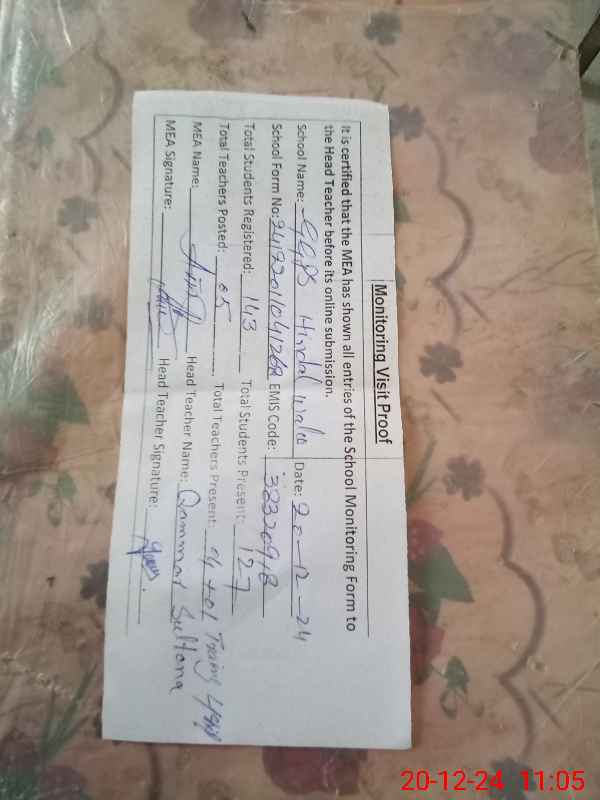 Monitoring Visit Proof
It is certified that the MEA has shown all entries of the School Monitoring Form to
the Head Teacher before its online submission.
School Name: GGPS Date: 20-12-24
School Form No: EMIS Code:
Total Students Registered: 143 Total Students Present: 127
Total Teachers Posted: 05 Total Teachers Present: 04 + 01
MEA Name: Head Teacher Name: Qammar Sultana
MEA Signature: Head Teacher Signature:
20-12-24 11:05